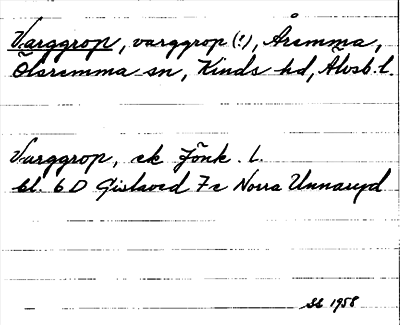 Varggrop, varggrop (!), Åremma,
Ölsremma sn, Kinds hd, Älvsb. l.
Varggrop, ek Jönk. l.
bl. 6 D Gislaved 7c Norra Unnaryd
1958